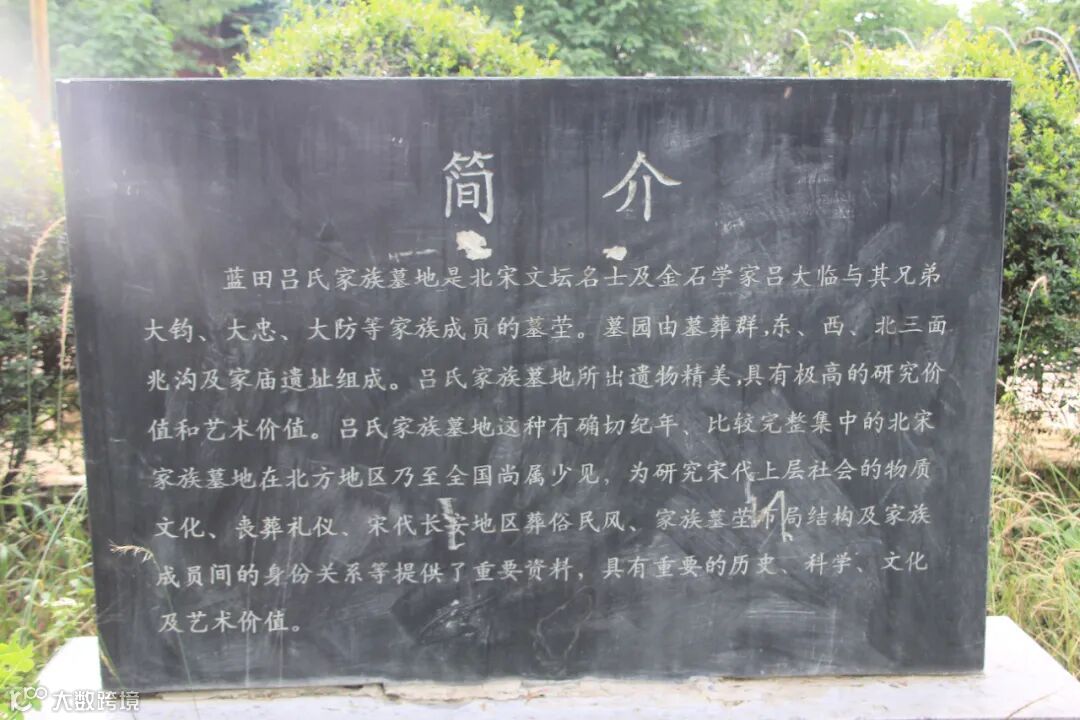 简介
蓝田吕氏家族墓地是北宋文坛名士及金石学家吕大临与其兄弟
大钧、大忠、大防等家族成员的墓茔。墓园由墓葬群,东、西、北三面
兆沟及家庙遗址组成。吕氏家族墓地所出遗物精美,具有极高的研究价
值和艺术价值。吕氏家族墓地这种有确切纪年、比较完整集中的北宋
家族墓地在北方地区乃至全国尚属少见，为研究宋代上层社会的物质
文化、丧葬礼仪、宋代长安地区葬俗民风、家族墓茔布局结构及家族
成员间的身份关系等提供了重要资料，具有重要的历史、科学、文化
及艺术价值。
大数跨境